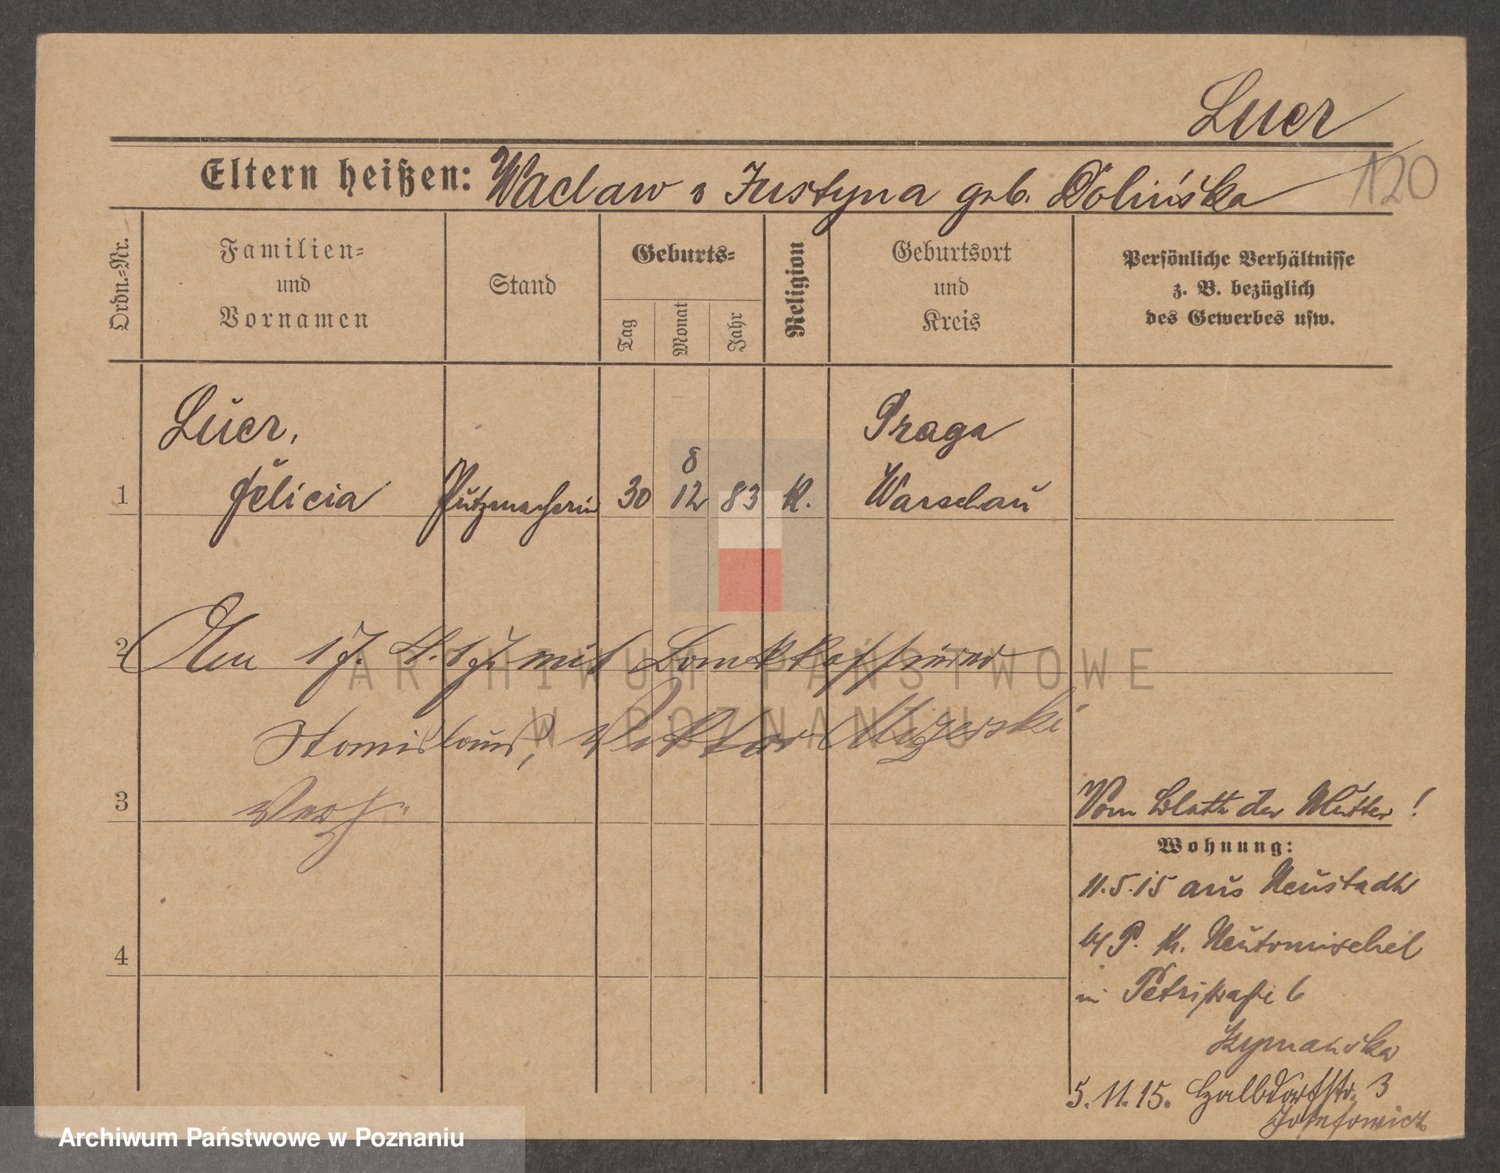 Luer
120
Eltern heißen: Waclaw u Justyna geb. Dolińska
Ordn.-Nr.
Familien- und Vornamen
Stand
Geburts-
Tag
Monat
Jahr
Religion
Geburtsort und Kreis
Persönliche Verhältnisse
z. B. bezüglich
des Gewerbes usw.
Luer,
Praga
8
1 Felicia Putzmacherin 30 12 83 K. Warschau
2
Am 17. 4. 17 mit
Stanislaus, Viktor Mizerski
3
Verh.
Vom Blatte der Mutter!
Wohnung:
11.5.15 aus Neustadt
b/P. K. Neutomischel
4
in Petristraße 6
Szymańska
5.11.15. Halbdorfstr. 3
Józefowicz
ARCHIWUM PAŃSTWOWE
W POZNANIU
Archiwum Państwowe w Poznaniu